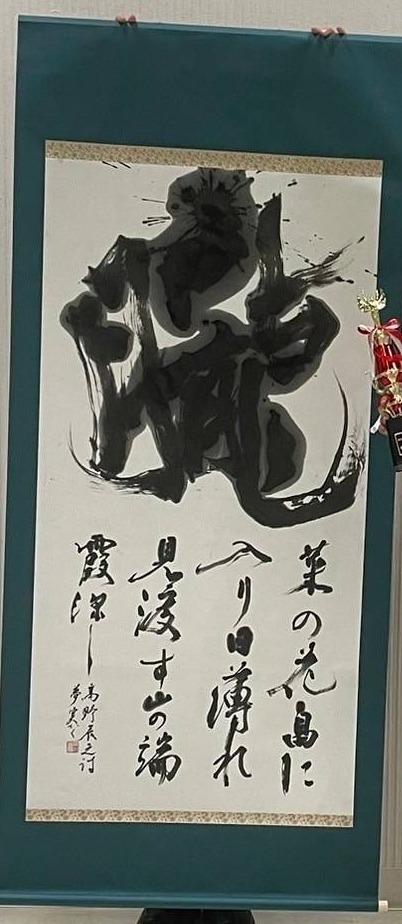 朧
菜の花畠に
入り日薄れ
見渡す山の端
霞深し
高野辰之詩